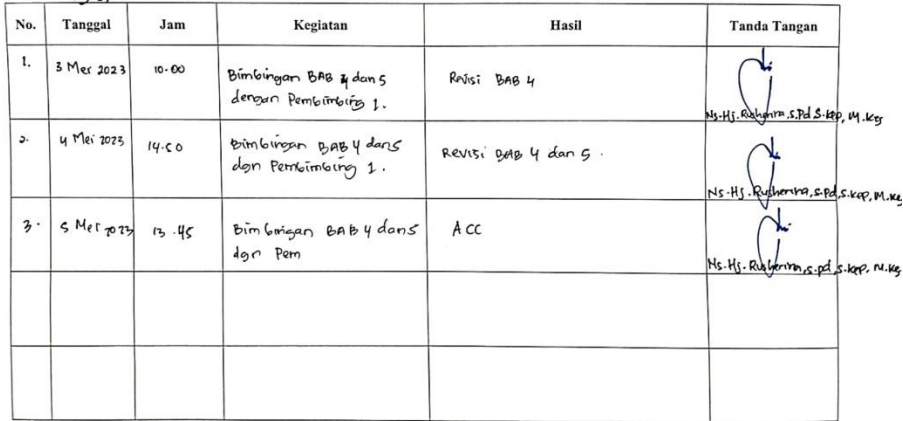 No. Tanggal Jam Kegiatan Hasil Tanda Tangan
1. 3 Mei 2023 10.00 Bimbingan BAB 4 dan 5 Revisi BAB 4
dengan Pembimbing 1.
Ns. Hj. Rusherina, S.Pd, S.Kep, M.Kes
2. 4 Mei 2023 14.50 Bimbingan BAB 4 dan 5 Revisi BAB 4 dan 5.
dgn Pembimbing 1.
Ns. Hj. Rusherina, S.Pd, S.Kep, M.Kes
3. 5 Mei 2023 13.45 Bimbingan BAB 4 dan 5 ACC
dgn Pem
Ns. Hj. Rusherina, S.Pd, S.Kep, M.Kes